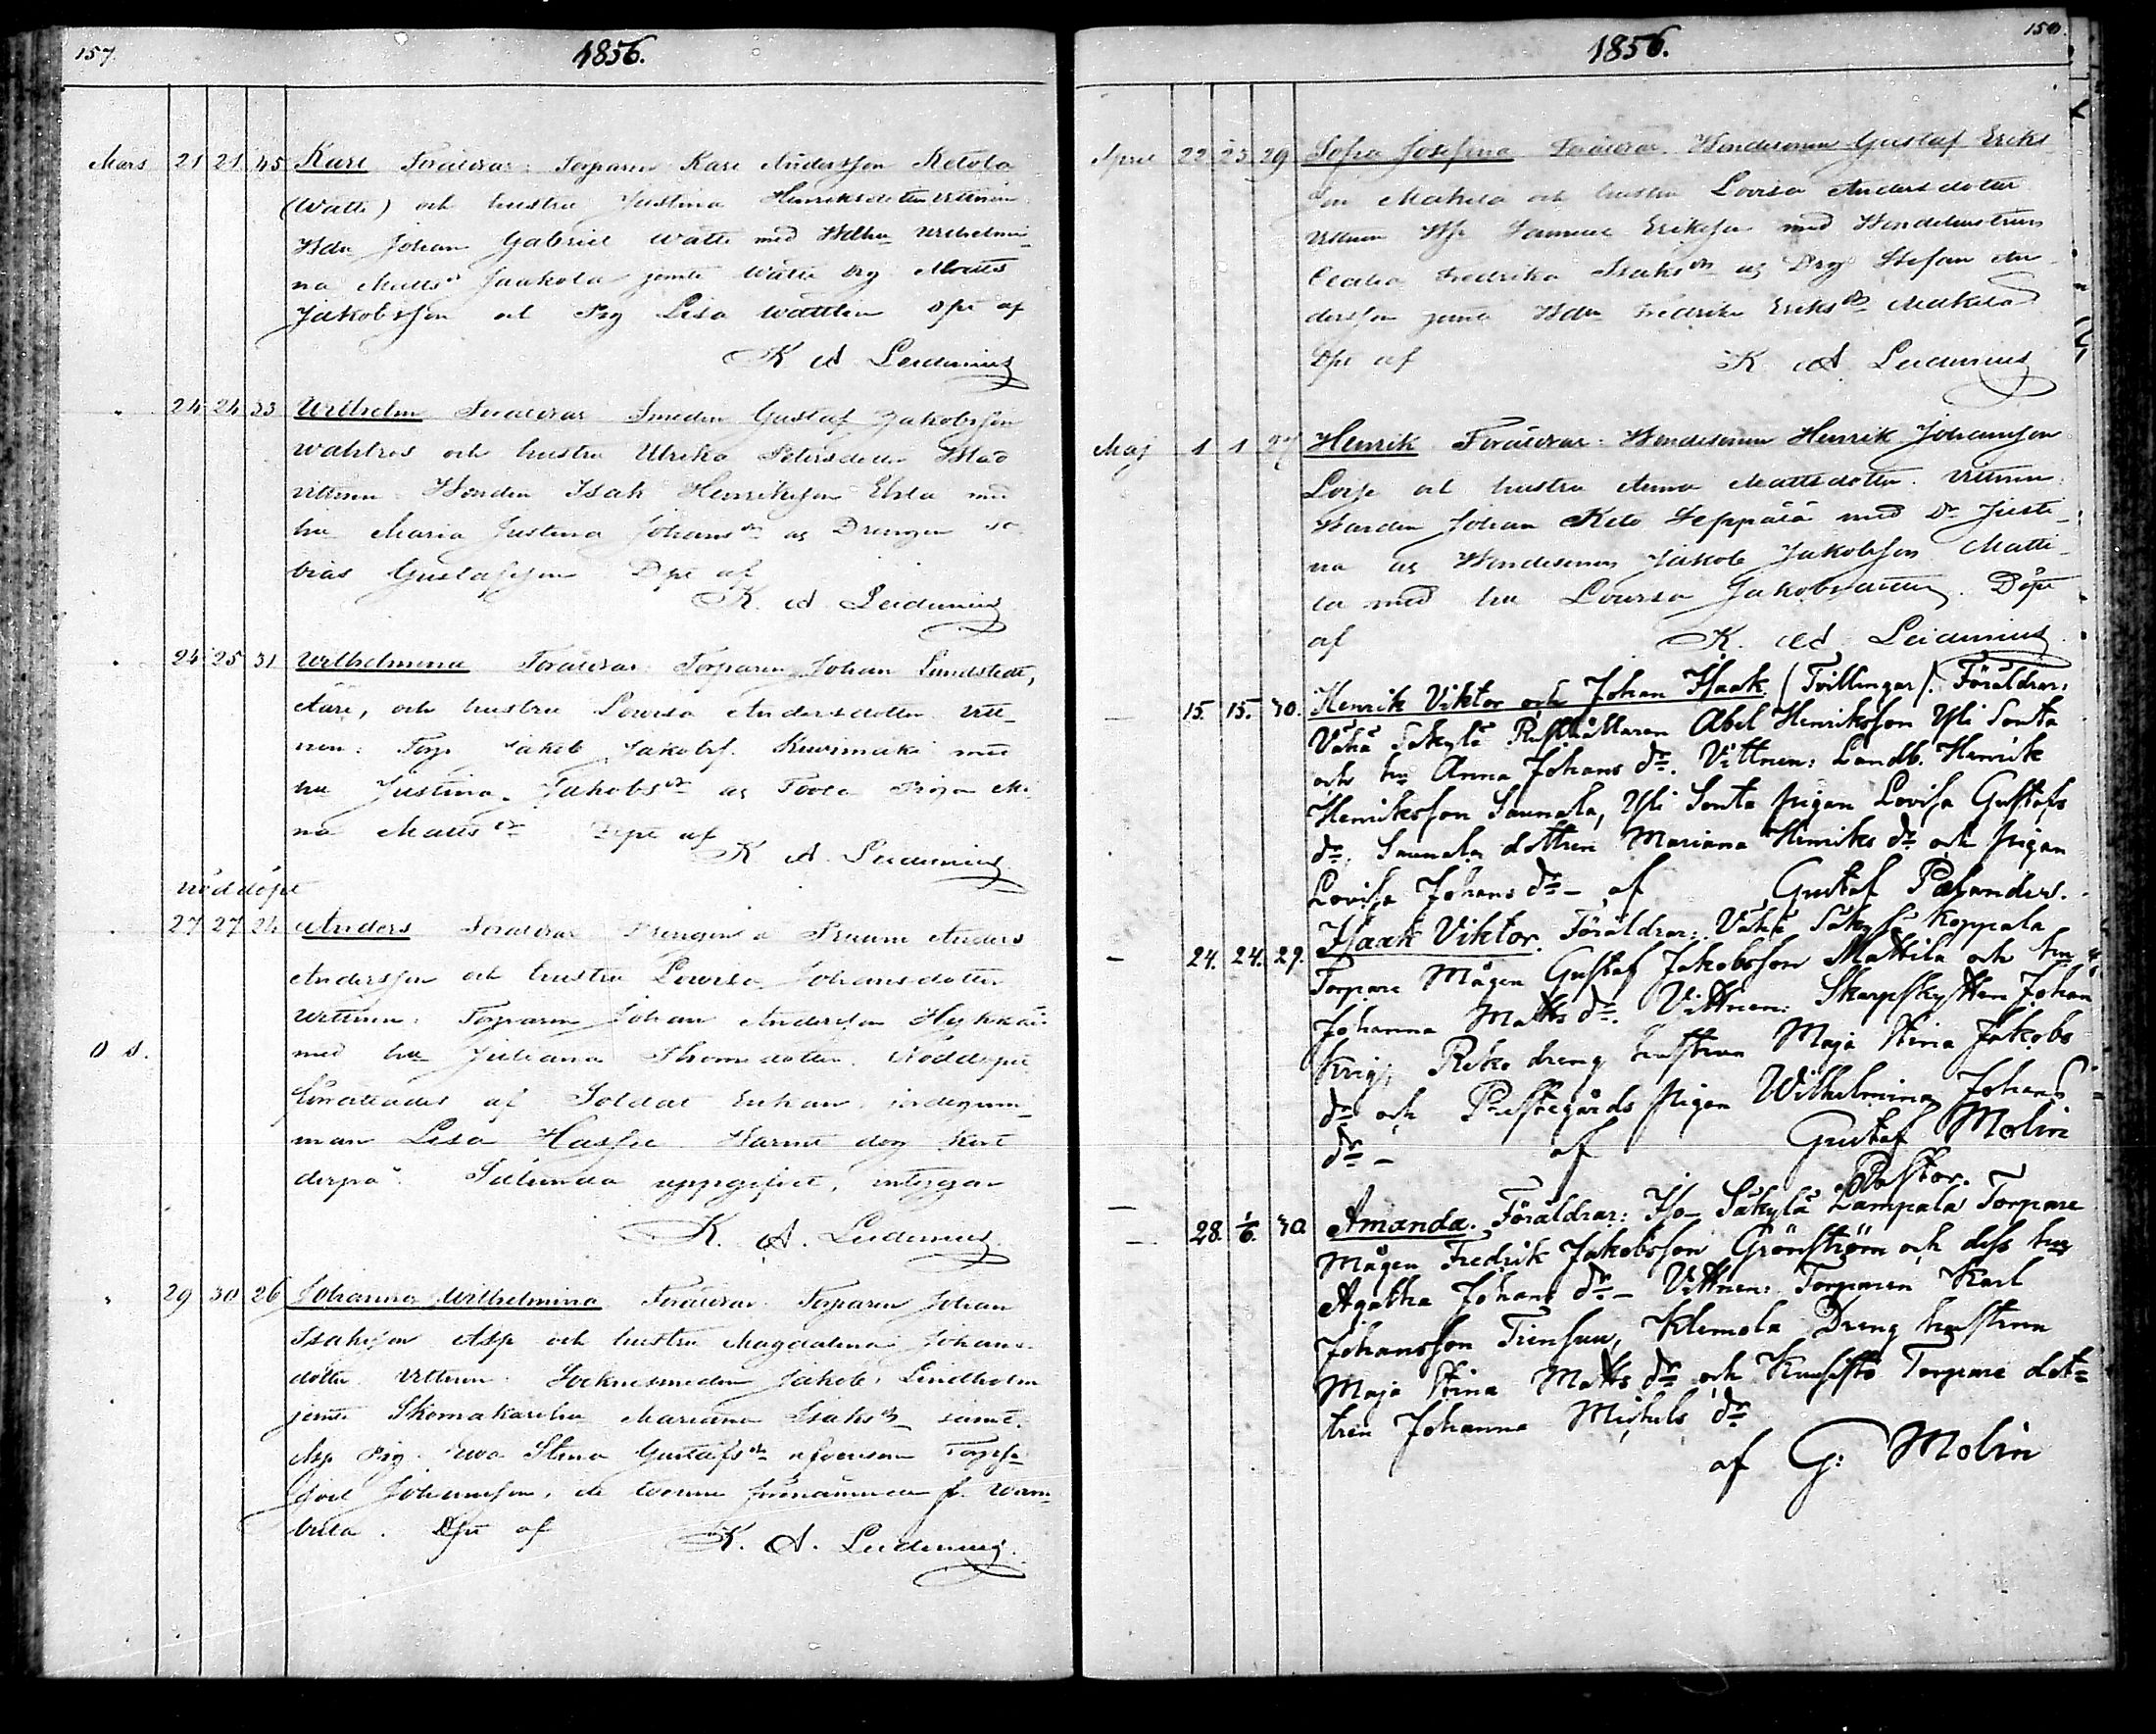 157.
1856.
Mars 21 21 45 Karl Föräldrar: Torparen Karl Andersson Ketola
(Watti) och hustru Justina Henriksdotter. Vittnen:
Bdn Johan Gabriel Watti med Bdhu Wilhelmi-
na Matts dr Jaakola jemte Watti drg Matts
Jakobsson och Pig Lisa döpt af
K A Leidenius
24 24 33 Wilhelm Föräldrar Smeden Gustaf Jakobsson
Wahlros och hustru Ulrika Petersdotter
Vittnen Bonden Isak Henriksson med
hu Maria Justina Johans dr og Drengen To-
bias Gustafsson Dpt af
K. A Leidenius
24 25 31 Wilhelmina Föräldrar: Torparen Johan Lundstedt,
och hustru Lovisa Andersdotter Vitt-
nen: Torp Jakob Jakobss. med
hu Justina Jakobs dr og Pigan Mi-
na Matts dr Dpt af
K A. Leidenius
nöddöpt
27 27 24 Anders Föräldrar Drengen Anders
Andersson och hustru Lovisa Johansdotter
Vittnen: Torparen Johan Andersson
O A. med hu Juliana Thomedotter. Nöddöpt
af Soldat
man Lisa dog
derpå. uppgifvet, intygar
K. A. Leidenius
29 30 26 Johanna Wilhelmina Föräldrar Torparen Johan
Isaksson Asp och hustru Magdalena Johans-
dotter Vittnen Socknesmeden Jakob Lindholm
jemte Skomakarehu Mariana Isaks dr samt
Asp Pig. Ewa Stina Gustafs dr äfvensom
Johansson, de
Dpt af
K. A. Leidenius
158.
1856.
April 22 23 29 Sofia Josefina Föräldrar Bondesonen Gustaf Eriks
son Makila och hustru Lovisa Andersdotter
Vittnen Samuel Eriksson med Bondehustrun
Fredrika Isaks dr og Drg Stefan An-
dersson jemte Bdn Fredrika Eriks dr Makila
Dpt af K A. Leidenius
Maj 1 1 27 Henrik Föräldrar: Bondesonen Henrik Johansson
och hustru Anna Mattsdotter. Vittnen:
Bonden Johan Keto Seppälä med Dr Justi-
na og Bondesonen Jakob Jakobsson Matti-
la med hu Lovisa Jakobsdotter. Döpt
af K. A. Leidenius
— 15. 15. 30. Henrik Viktor och Johan Isaak (Tvillingar). Föräldrar:
Vähä Säkylä Rusthållaren Abel Henriksson Yli Sonta
och hu Anna Johans dr. Vittnen: Landb. Henrik
Henriksson Saunala, Yli Sonta pigan Lovisa Gustafs
dr. Saunala dottren Mariana Henriks dr och pigan
Lovisa Johans dr – af Gustaf Palanders.
— 24. 24. 29. Isaak Viktor. Föräldrar: Vähä Säkylä Koppala
Torpare Mågen Gustaf Jakobsson Mattila och hu
Johanna Matts dr. Vittnen: Skarpskytten Johan
Krig, dreng hustrun Maja Stina Jakobs
dr och Prestegårds pigan Wilhelmina Johans
dr – af Gustaf Molin
Pastor.
— 28. 1/6. 30. Amanda. Föräldrar: Iso Säkylä Lampala Torpare
Mågen Fredrik Jakobsson Grönström och dess hu
Agatha Johans dr – Vittnen: Torparen Karl
Johansson Klemola Dreng hustrun
Maja Stina Matts dr och Kuusisto Torpare dot-
tren Johanna Michels dr
af G: Molin